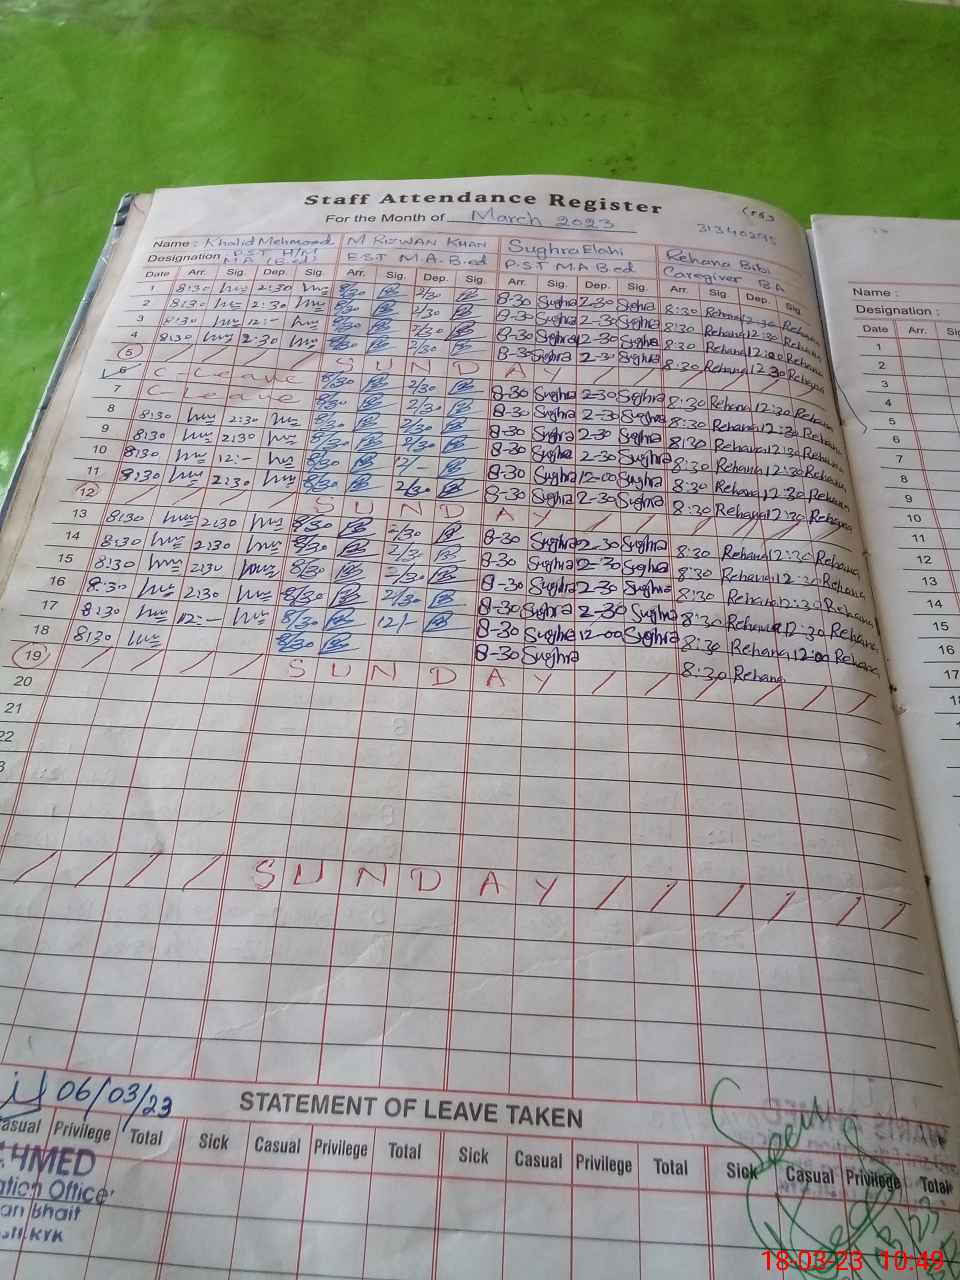 Staff Attendance Register
For the Month of March 2023
31340295
Name : Khalid Mehmood M RIZWAN KHAN Sughra Elahi Rehana Bibi
Designation : P.S.T H/M EST M.A. B.ed P.S.T M.A B.ed Caregiver B.A
Date Arr. Sig. Dep. Sig. Arr. Sig. Dep. Sig. Arr. Sig. Dep. Sig. Arr. Sig. Dep. Sig.
1 8:30 2:30 8/30 2/30 8-30 Sughra 2-30 Sughra 8:30 Rehana 12:30 Rehana
2 8:30 2:30 8/30 2/30 8-30 Sughra 2-30 Sughra 8:30 Rehana 12:30 Rehana
3 8:30 12:- 8/30 8-30 Sughra 2-30 Sughra 8:30 Rehana Rehana
4 8:30 2:30 8/30 2/30 8-30 Sughra 2-30 Sughra 8:30 Rehana 12:30 Rehana
5 SUNDAY
6 C-Leave 8/30 2/30 8-30 Sughra 2-30 Sughra 8:30 Rehana 12:30 Rehana
7 C-Leave 8/30 2/30 8-30 Sughra 2-30 Sughra 8:30 Rehana 12:30 Rehana
8 8:30 2:30 8/30 2/30 8-30 Sughra 2-30 Sughra 8:30 Rehana 12:30 Rehana
9 8:30 2:30 8/30 2/30 8-30 Sughra 2-30 Sughra 8:30 Rehana 12:30 Rehana
10 8:30 12:- 8/30 12/- 8-30 Sughra 12-00 Sughra 8:30 Rehana 12:30 Rehana
11 8:30 2:30 8/30 2/30 8-30 Sughra 2-30 Sughra 8:30 Rehana 12:30 Rehana
12 SUNDAY
13 8:30 2:30 8/30 2/30 8-30 Sughra 2-30 Sughra 8:30 Rehana 12:30 Rehana
14 8:30 2:30 8/30 8-30 Sughra 2-30 Sughra 8:30 Rehana 12:30 Rehana
15 8:30 2:30 8/30 2/30 8-30 Sughra 2-30 Sughra 8:30 Rehana 12:30 Rehana
16 8:30 2:30 8/30 2/30 8-30 Sughra 2-30 Sughra 8:30 Rehana 12:30 Rehana
17 8:30 12:- 8/30 12/- 8-30 Sughra 12-00 Sughra 8:30 Rehana 12:00 Rehana
18 8:30 8/30 8-30 Sughra 8:30 Rehana
19 SUNDAY
20
21
22
SUNDAY
06/03/23
STATEMENT OF LEAVE TAKEN
Casual Privilege Total Sick Casual Privilege Total Sick Casual Privilege Total Sick Casual Privilege Total
Name :
Designation :
Date Arr.
1
2
3
4
5
6
7
8
9
10
11
12
13
14
15
16
17
18-03-23 10:49